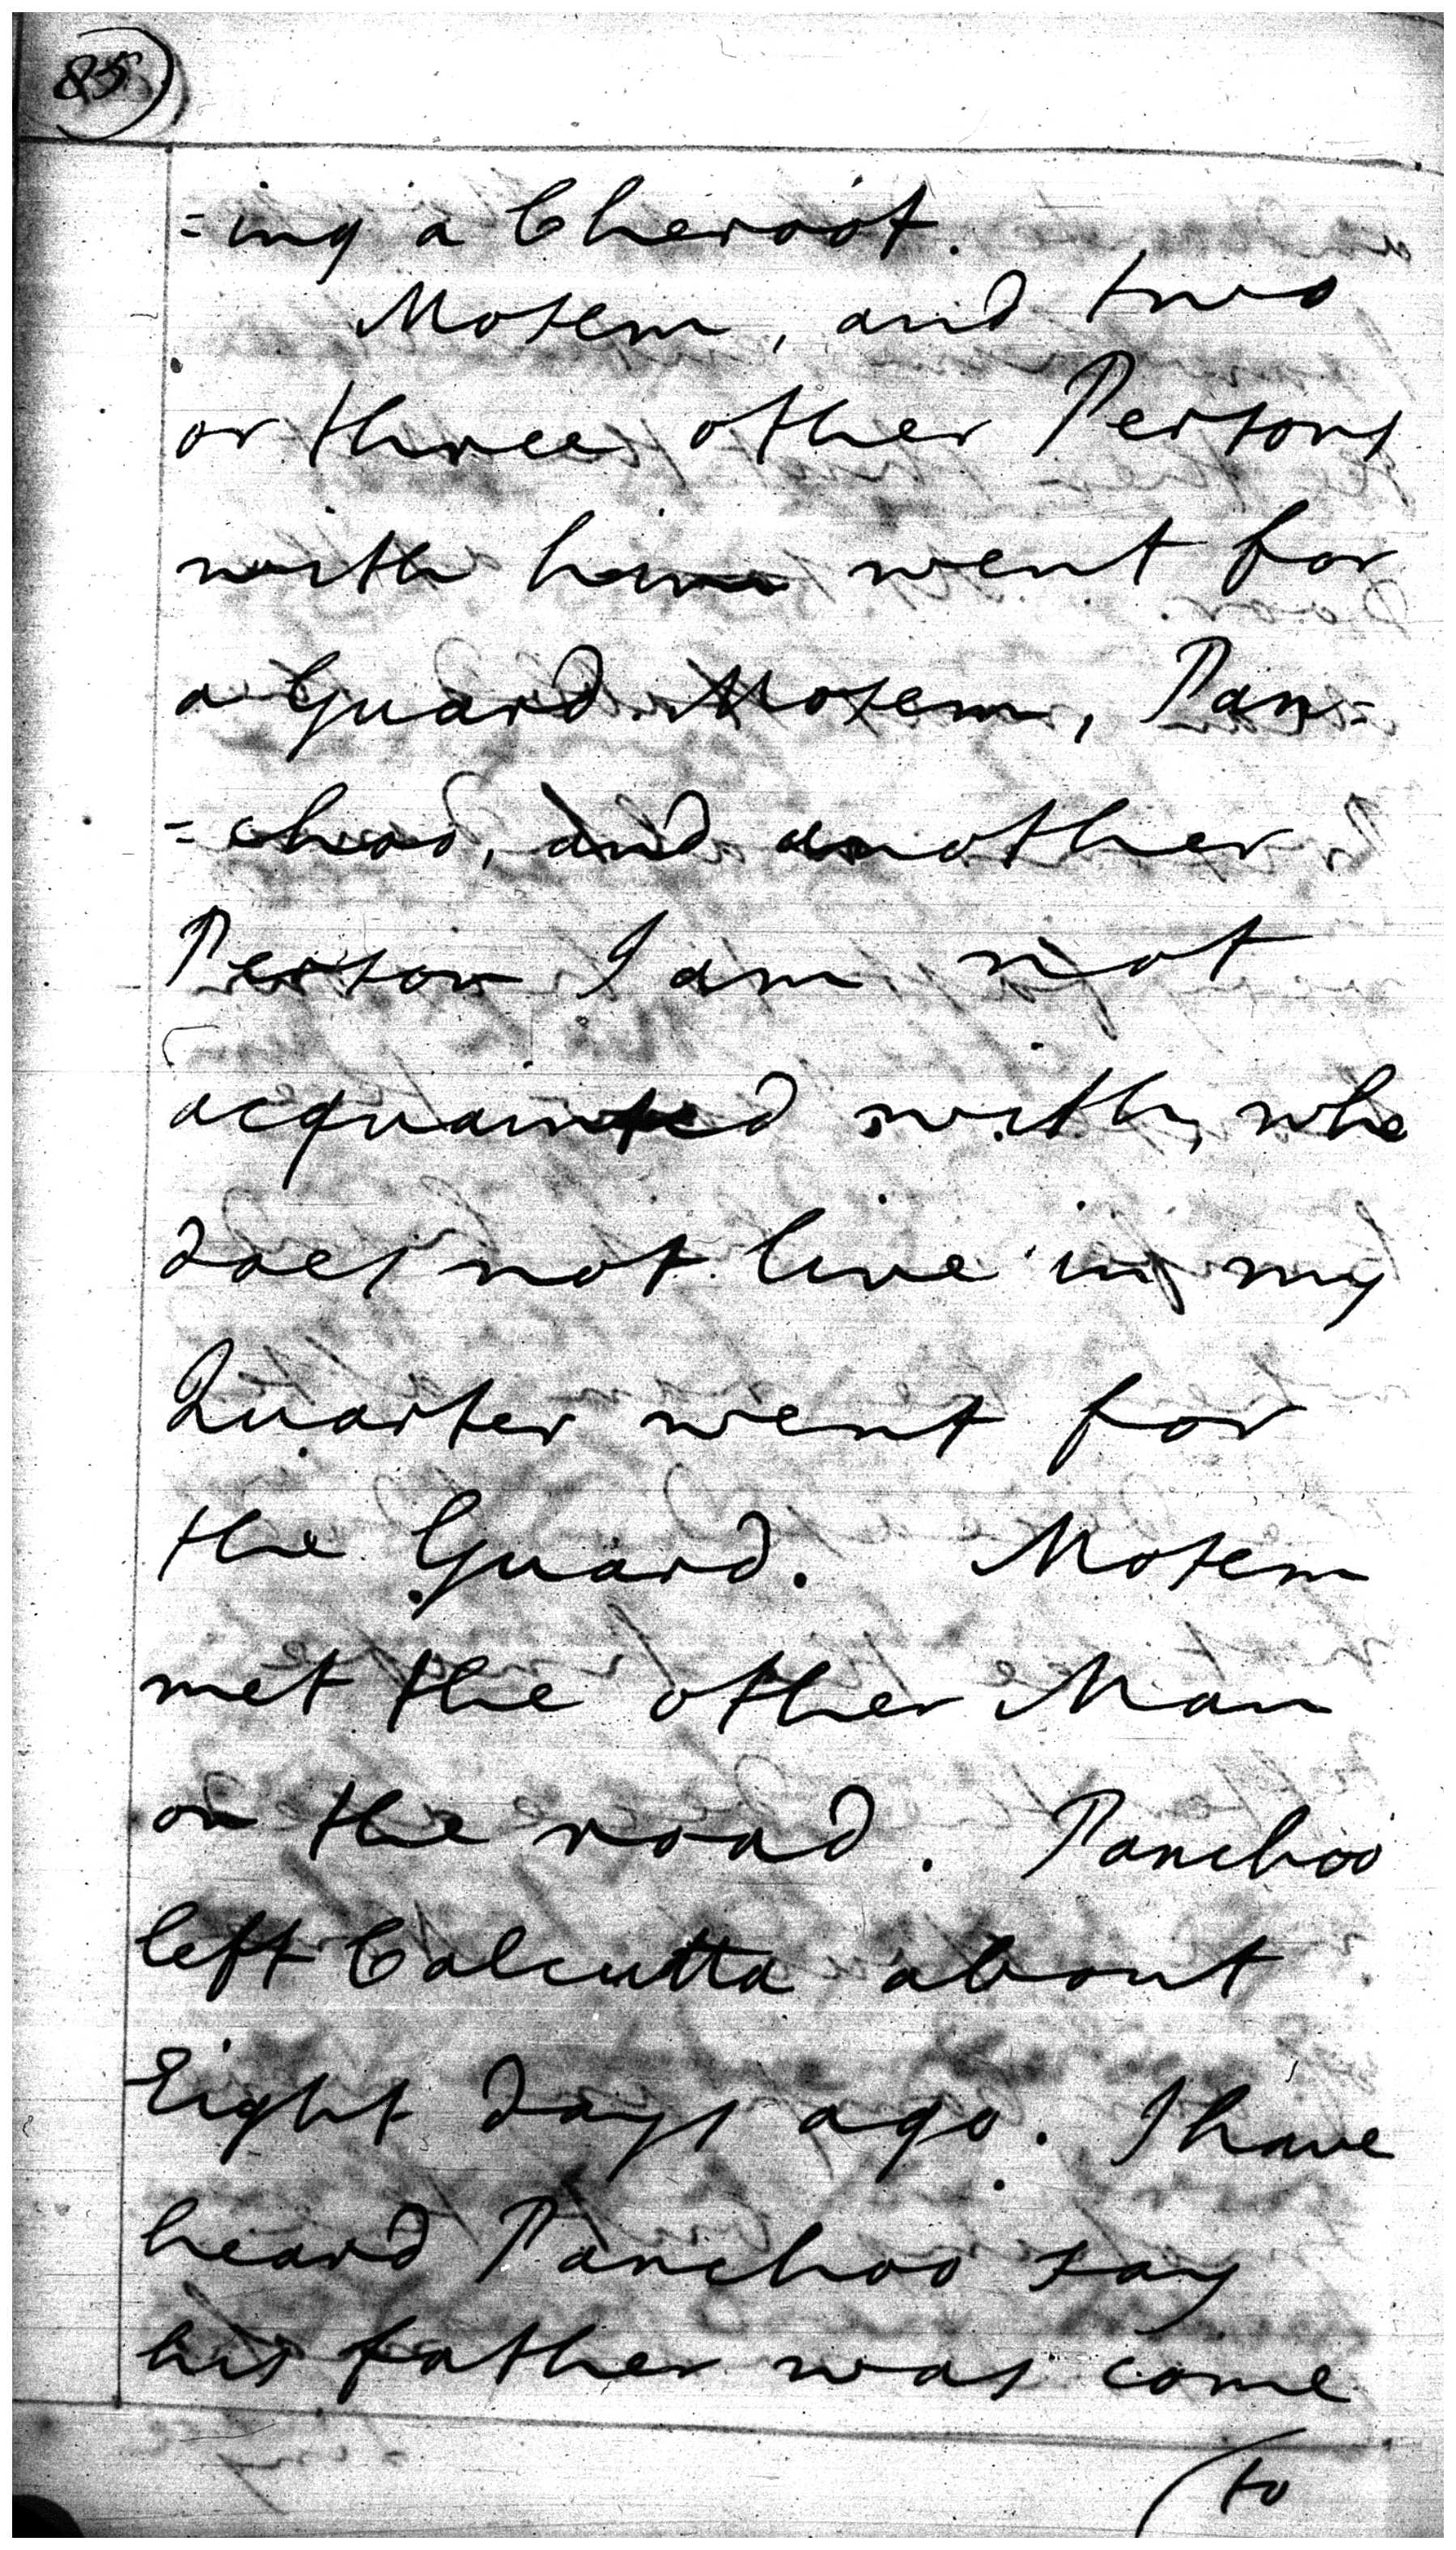 85)
=ing a Cheroot.
Mosem, and two
or three other Persons
with him went for
a Guard. Mosem, Pan=
=choo, and another
Person I am not
acquainted with, who
does not live in my
Quarter went for
the Guard. Mosem
met the other Man
on the road. Panchoo
left Calcutta about
Eight days ago. I have
heard Panchoo say
his father was come
(to